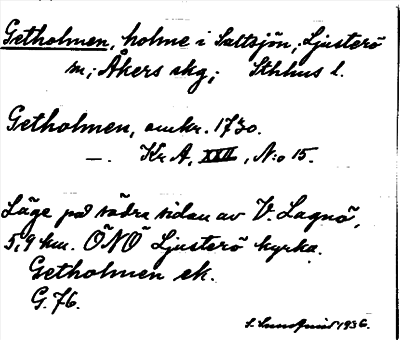 Getholmen, holme i Saltsjön, Ljusterö
sn; Åkers skg; Sthlms l.
Getholmen, omkr. 1730.
—. Kr A, XXII, N:o 15.
Läge på södra sidan av V. Lagnö,
5,9 km. ÖNÖ Ljusterö kyrka.
Getholmen ek.
G. 76.
S. Lundqvist 1936.